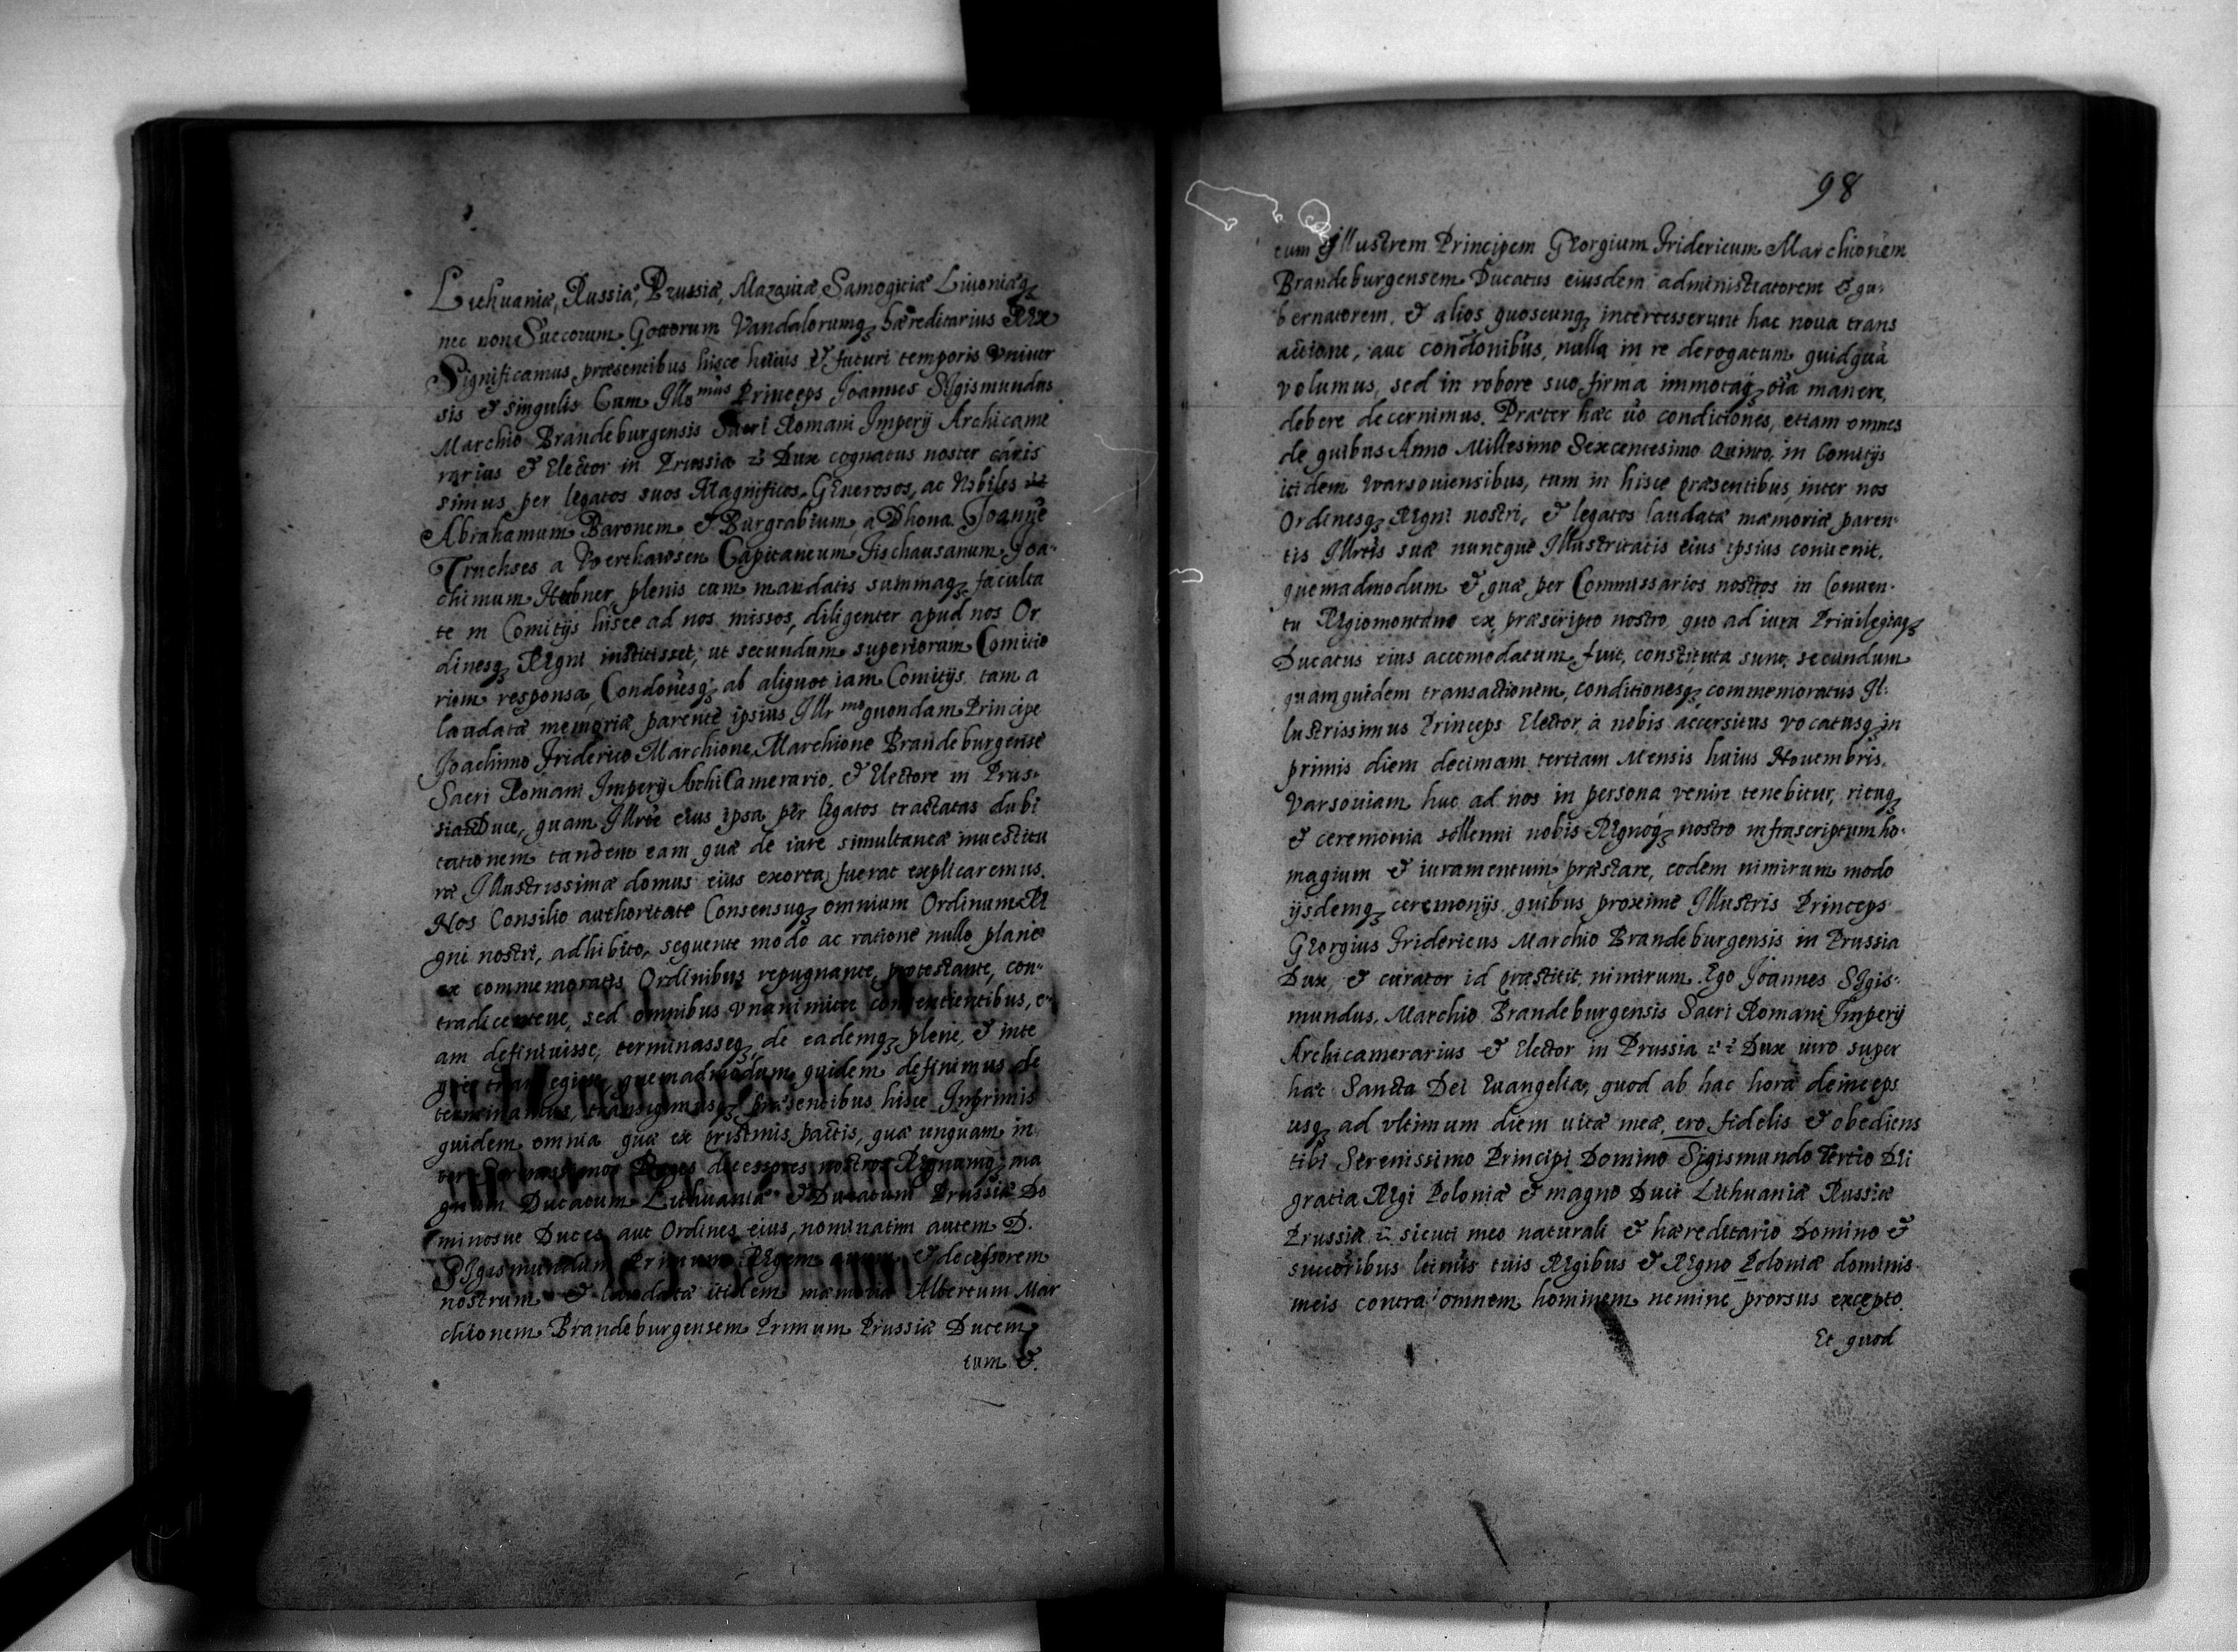 Lithuaniæ, Russiæ, Prussiæ, Mazouiæ Samogitiæ Liuoniæq3
nec non Suecorum Gottorum Vandalorumq3 hæreditarius REx
Significamus præsentibus hisce huius & futuri temporis vniuer
sis & singulis Cum Illmus Princeps Joannes SJgismundus
Marchio Brandeburgensis Sacri Romani Imperij Archicame
rarius & Elector in Prussia Dux cognatus noster cáris
simus per legatos suos Magnificos, GEnerosos, ac Nobiles
Abrahamum Baronem, & Burgrabium, a Dhona Joannē
Truchses a Capitaneum Fischausanum, Joa-
chimum Hubner, plenis cum mandatis summaq3 faculta
te in Comitijs hisce ad nos missos, diligenter apud nos Or
dinesq3 REgni institisset, ut secundum superiorum Comitio
rum responsa, Condonesq3 ab aliquot iam Comitijs tam a
laudatæ memoriæ parente ipsius Illrmo quondam Principe
Joachimo Friderico Marchione, Marchione Brandeburgense
Sacri Romani Imperij ArchiCamerario, & Electore in Prus-
sia Duce, quam Illrte eius ipsa per legatos tractatas dubi
tationem tandem eam quæ de iure simultaneæ inuestitu
ræ Illustrissimæ domus eius exorta fuerat explicaremus.
Nos Consilio authoritate Consensuq3 omnium Ordinum RE
gni nostri, adhibito, sequente modo ac ratione nullo plane
ex commemoratis Ordinibus repugnante, protestante, con-
tradicenteue, sed omnibus vnanimiter consentientibus, e-
am definiuisse, terminasseq3 de eademq3 plene, & inte
gre transegisse, quemadmodum quidem definimus de
terminamus, transigimusq3 præsentibus hisce Inprimis
quidem omnia quæ ex pristinis pactis, quæ unquam in
ter Serenissimos Reges decessores nostros REgnumq3 ma
gnum Ducatum Lithuaniæ & Ducatum Prussiæ Do
minosue Duces aut Ordines eius, nominatim autem D.
SJgismundum Primum REgem auum & decessorem
nostrum & laudatæ itidem mæmoriæ Albertum Mar
chionem Brandeburgensem Primum Prussiæ Ducem
tum &.
98
tum & Illustrem Principem GEorgium Fridericum Marchionem
Brandeburgensem Ducatus eiusdem administratorem & gu-
bernatorem, & alios quoscunq3 intercesserunt hac noua trans
actione, aut condōnibus, nulla in re derogatum quidquā
volumus, sed in robore suo firma immotaq3 oīa manere,
debere decernimus. Præter hæc ūo conditiones, etiam omnes
de quibus Anno Millesimo Sexcentesimo Quinto, in Comitijs
itidem Warsouiensibus, tum in hisce præsentibus, inter nos
Ordinesq3 REgni nostri, & legatos laudatæ mæmoriæ paren-
tis Illrtis suæ nuncque Illustritatis eius ipsius conuenit,
quemadmodum & quæ per Commissarios nostros in Conuen-
tu REgiomontano ex præscripto nostro, quo ad iura Priuilegiaq3
Ducatus eius accomodatum fuit, constituta sunt, secundum
quamquidem transactionem, conditionesq3 commemoratus Il-
lustrissimus Princeps Elector à nobis accersitus vocatusq3 in
primis diem decimam tertiam Mensis huius Nouembris.
Varsouiam huc ad nos in persona venire tenebitur, rituq3
& ceremonia sollenni nobis REgnoq3 nostro infrascriptum ho-
magium & iuramentum præstare, eodem nimirum modo
ijsdemq3 ceremonijs quibus proxime Illustris Princeps
GEorgius Fridericus Marchio Brandeburgensis in Prussia
Dux, & curator id præstitit, nimirum. Ego Joannes SJgis-
mundus, Marchio Brandeburgensis Sacri Romani Imperij
Archicamerarius & Elector in Prussia Dux iuro super
hæc Sancta Dei Euangelia, quod ab hac hora deinceps
usq3 ad vltimum diem uitæ meæ, ero fidelis & obediens
tibi Serenissimo Principi Domino Sigismundo Tertio DEi
gratia REgi Poloniæ & magno Duci Lithuaniæ Russiæ
Prussiæ sicuti meo naturali & hæreditario Domino &
succoribus leimis tuis REgibus & REgno Poloniæ dominis
meis contra omnem hominem nemine prorsus excepto.
Et quod